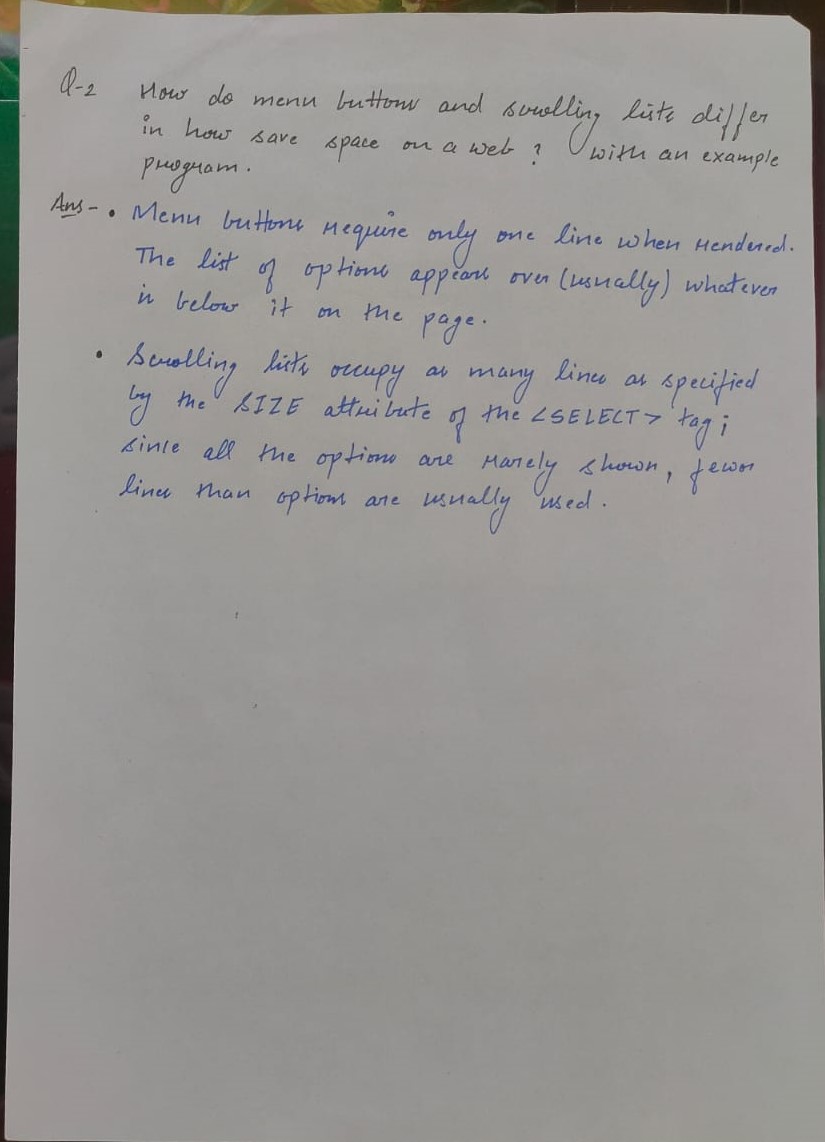 Q-2 How do menu buttons and scrolling lists differ
in how save space on a web ? with an example
program.
Ans - • Menu buttons require only one line when rendered.
The list of options appears over (usually) whatever
is below it on the page.
• Scrolling lists occupy as many lines as specified
by the SIZE attribute of the <SELECT> tag;
since all the options are rarely shown, fewer
lines than options are usually used.